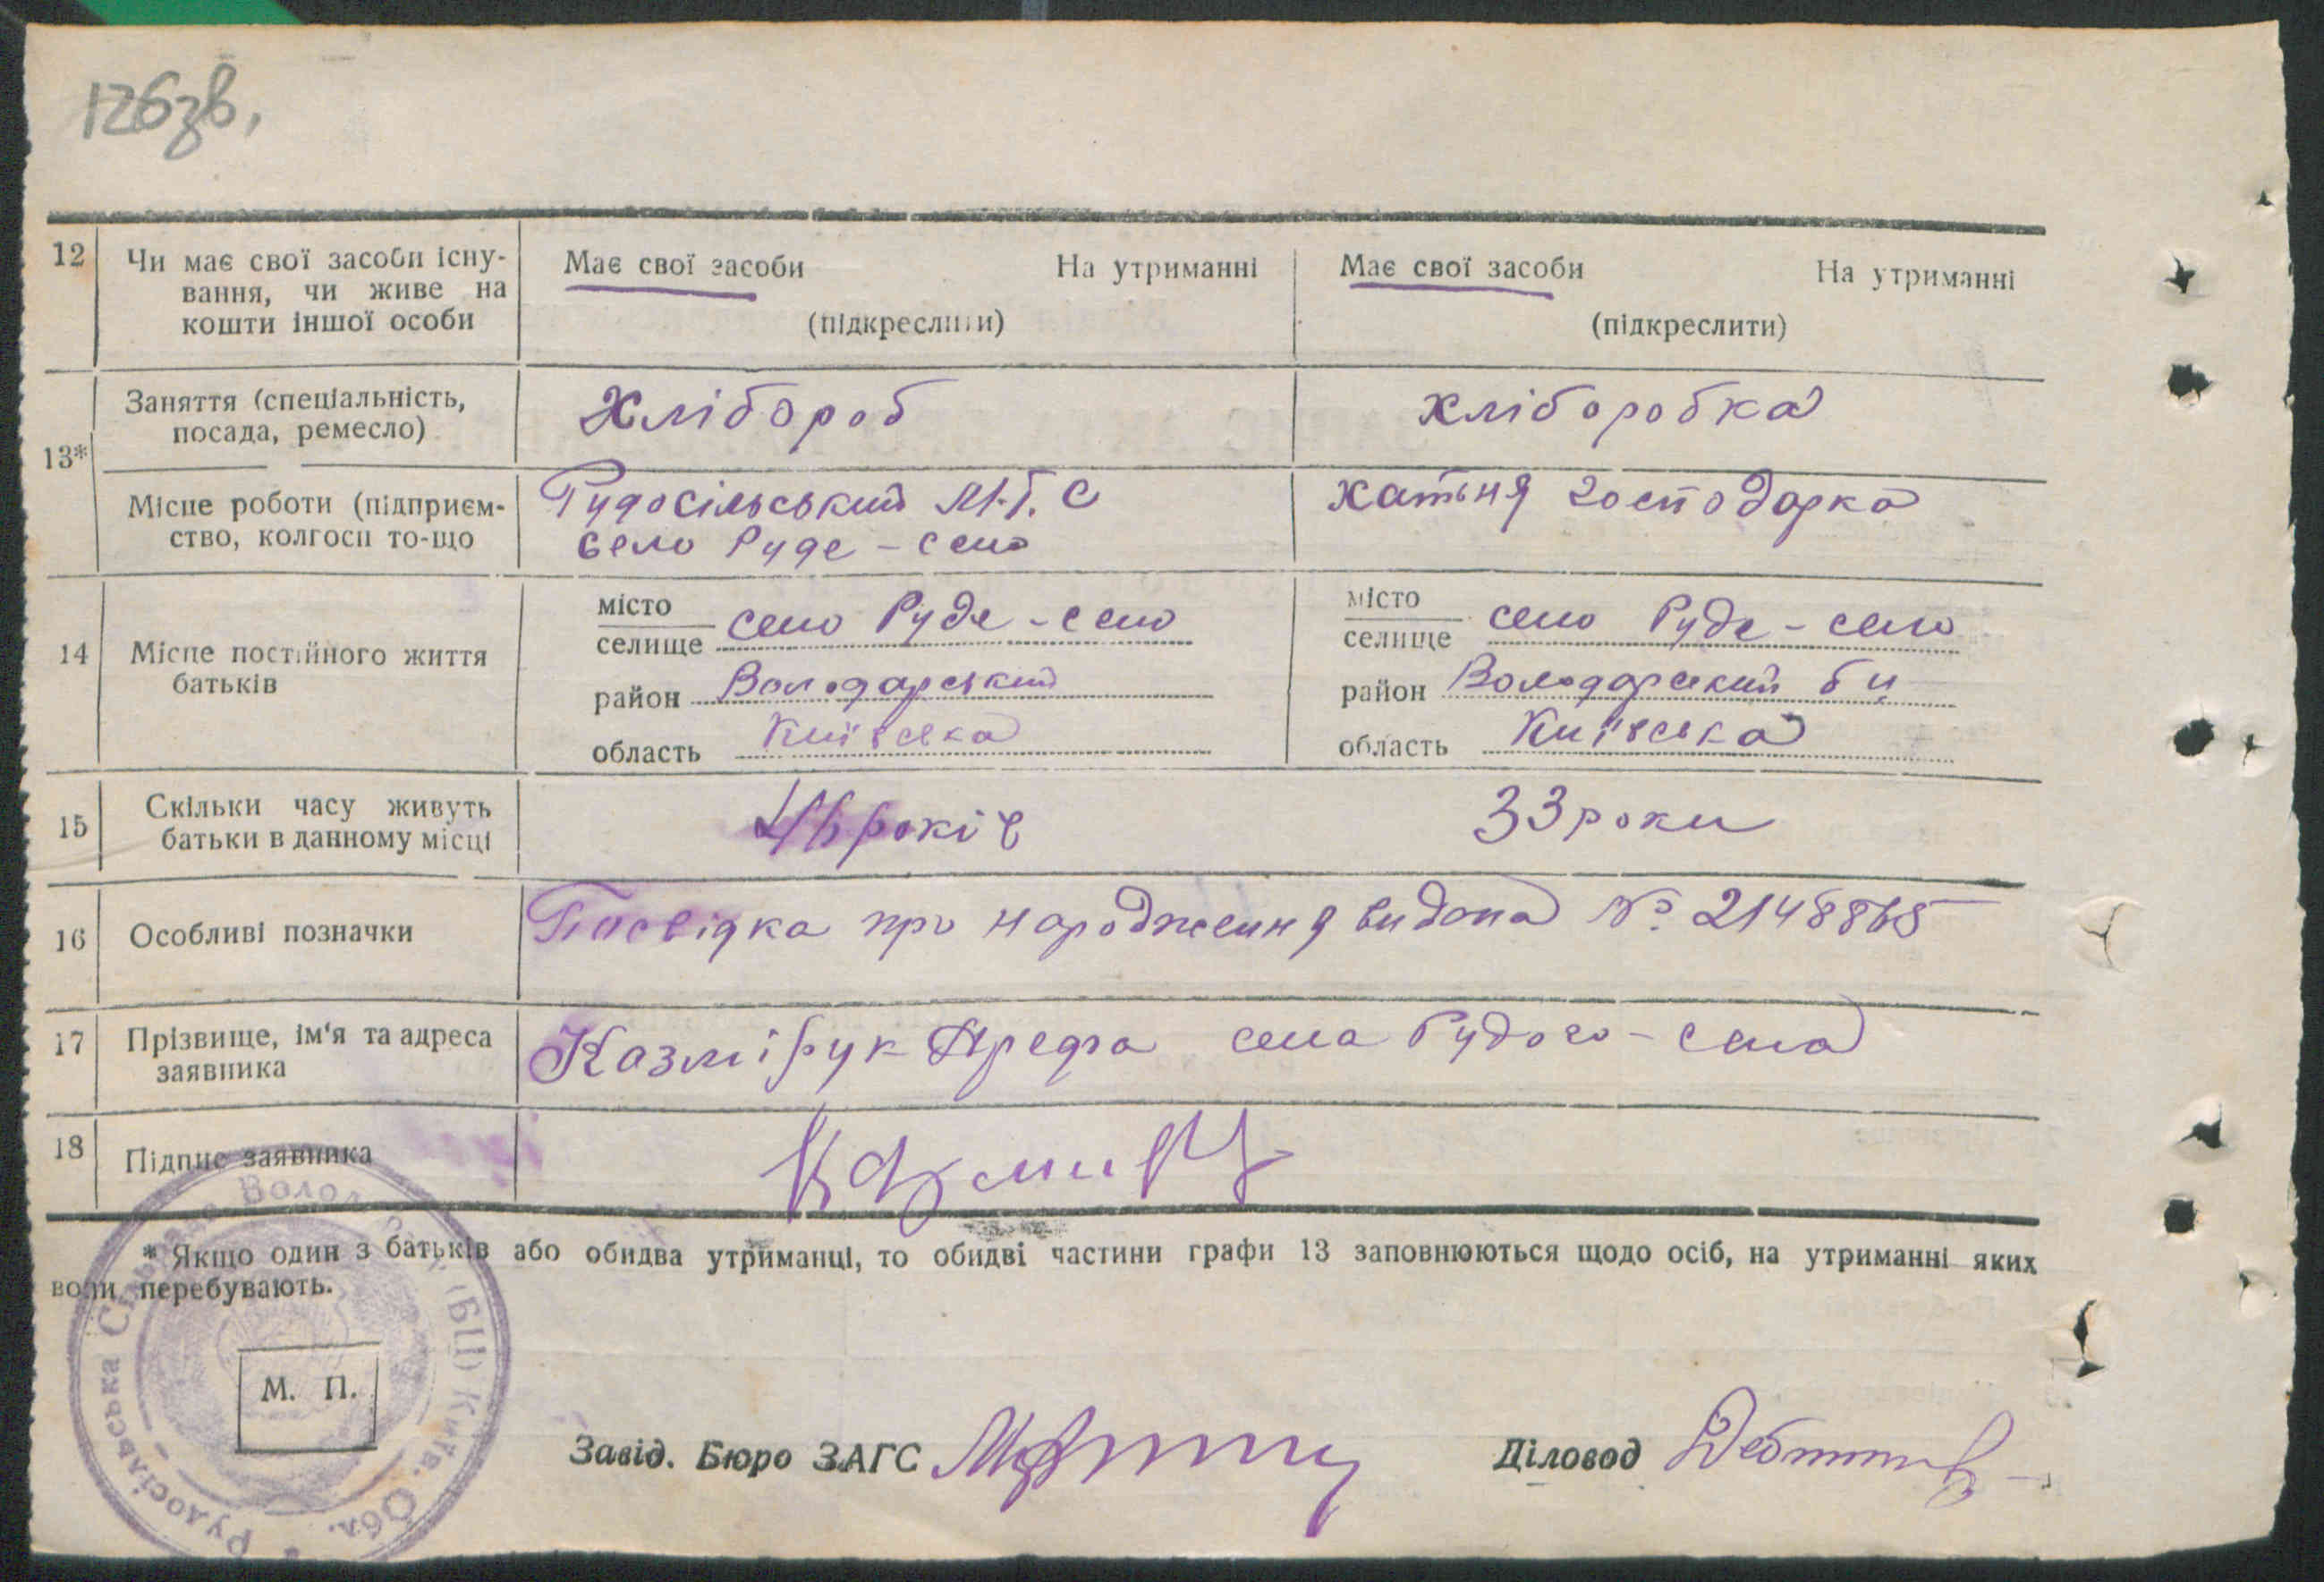 126зв.
12
Чи має свої засоби існу-
вання, чи живе на
кошти іншої особи
Має свої засоби На утриманні
(підкреслити)
Має свої засоби На утриманні
(підкреслити)
13*
Заняття (спеціальність,
посада, ремесло)
Хлібороб
хліборобка
Місце роботи (підприєм-
ство, колгосп то-що
Рудосільський М.Т.С
село Руде-село
хатьня господарка
14
Місце постійного життя
батьків
місто
селище село Руде-село
район Володарський
область Київська
місто
селище село Руде-село
район Володарський бц
область Київська
15
Скільки часу живуть
батьки в данному місці
років
33 роки
16
Особливі позначки
Посвідка про народження видана № 2148865
17
Прізвище, ім'я та адреса
заявника
Казмірук села Рудого-села
18
Підпис заявника
* Якщо один з батьків або обидва утриманці, то обидві частини графи 13 заповнюються щодо осіб, на утриманні яких
вони перебувають.
Рудосільська (БЦ) Київ. Обл.
М. П.
Завід. Бюро ЗАГС
Діловод